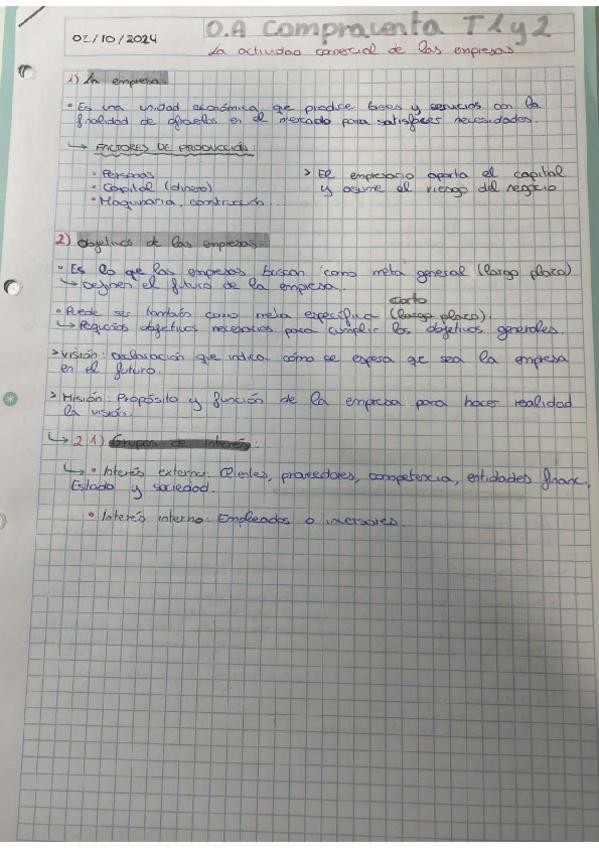 02/10/2024
O.A Compraventa T1 y 2
La actividad comercial de las empresas
1) La empresa:
• Es una unidad económica que produce bienes y servicios con la
finalidad de ofrecerlos en el mercado para satisfacer necesidades.
↳ FACTORES DE PRODUCCIÓN:
• Personas
• Capital (dinero)
• Maquinaria, construcción...
> El empresario aporta el capital
y asume el riesgo del negocio
2) Objetivos de las empresas:
• Es lo que las empresas buscan como meta general (largo plazo)
↳ Definen el futuro de la empresa.
corto
• Puede ser también como meta específica (largo plazo).
↳ Pequeños objetivos necesarios para cumplir los objetivos generales.
> Visión: Declaración que indica cómo se espera qe sea la empresa
en el futuro.
> Misión: Propósito y función de la empresa para hacer realidad
la visión.
↳ 2.1) Grupos de interés:
↳ • Interés externo: Clientes, proveedores, competencia, entidades financ,
Estado y sociedad.
• Interés interno: Empleados o inversores.